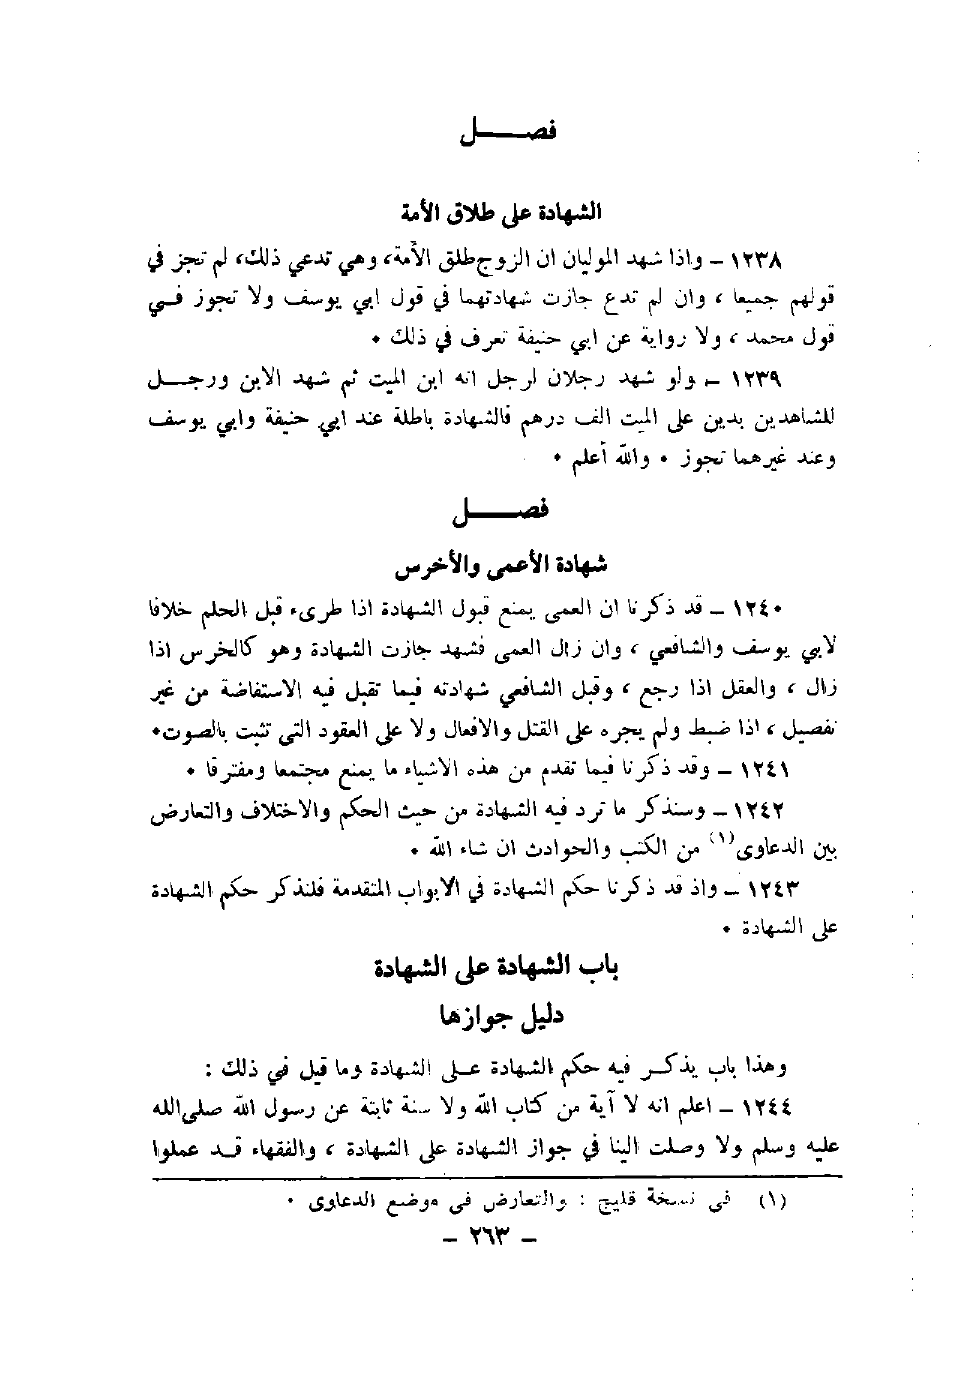 فصـــــل
الشهادة على طلاق الأمة
١٢٣٨ – واذا شهد الموليان ان الزوج طلق الأمة، وهي تدعي ذلك، لم تجز في
قولهم جميعا ، وان لم تدع جازت شهادتهما في قول ابي يوسف ولا تجوز فـــي
قول محمد ، ولا رواية عن ابي حنيفة تعرف في ذلك •
١٢٣٩ – ولو شهد رجلان لرجل انه ابن الميت ثم شهد الابن ورجـــل
للشاهدين بدين على الميت الف درهم فالشهادة باطلة عند ابي حنيفة وابي يوسف
وعند غيرهما تجوز • والله أعلم •
فصـــــل
شهادة الأعمى والأخرس
١٢٤٠ – قد ذكرنا ان العمى يمنع قبول الشهادة اذا طرىء قبل الحلم خلافا
لابي يوسف والشافعي ، وان زال العمى فشهد جازت الشهادة وهو كالخرس اذا
زال ، والعقل اذا رجع ، وقبل الشافعي شهادته فيما تقبل فيه الاستفاضة من غير
تفصيل ، اذا ضبط ولم يجره على القتل والافعال ولا على العقود التي تثبت بالصوت•
١٢٤١ – وقد ذكرنا فيما تقدم من هذه الاشياء ما يمنع مجتمعا ومفترقا •
١٢٤٢ – وسنذكر ما ترد فيه الشهادة من حيث الحكم والاختلاف والتعارض
بين الدعاوى(١) من الكتب والحوادث ان شاء الله •
١٢٤٣ – واذ قد ذكرنا حكم الشهادة في الابواب المتقدمة فلنذكر حكم الشهادة
على الشهادة •
باب الشهادة على الشهادة
دليل جوازها
وهذا باب يذكــر فيه حكم الشهادة علـى الشهادة وما قيل في ذلك :
١٢٤٤ – اعلم انه لا آية من كتاب الله ولا سنة ثابتة عن رسول الله صلى الله
عليه وسلم ولا وصلت الينا في جواز الشهادة على الشهادة ، والفقهاء قــد عملوا
(١) في نسخة قليج : والتعارض في موضع الدعاوى •
– ٢٦٣ –